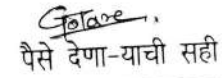 पैसे देणा-याची सही